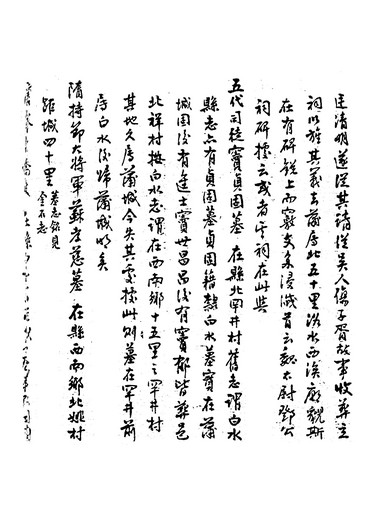 廷清明遂從其請從吴人傷子胥故事收葬立
祠以旌其義去蒲序北五十里洛水西溪廟貌斯
在有碑銳上而竅文多浸滅首云魏太尉鄧公
祠碑據云或者其祠在此與
五代司徒竇貞固墓 在縣北罕井村舊志謂白水
縣志亦有貞固墓貞固籍隸白水墓實在蒲
城固後有進士竇世昌昌後有竇郁皆葬邑
北祥村按白水志謂在西南鄉十五里之罕井村
其地久屬蒲城今失其處據此則墓在罕井前
屬白水後歸蒲城明矣
隋持節大將軍蘇孝慈墓 在縣西南鄉北姚村
離城四十里 墓志銘見金石志